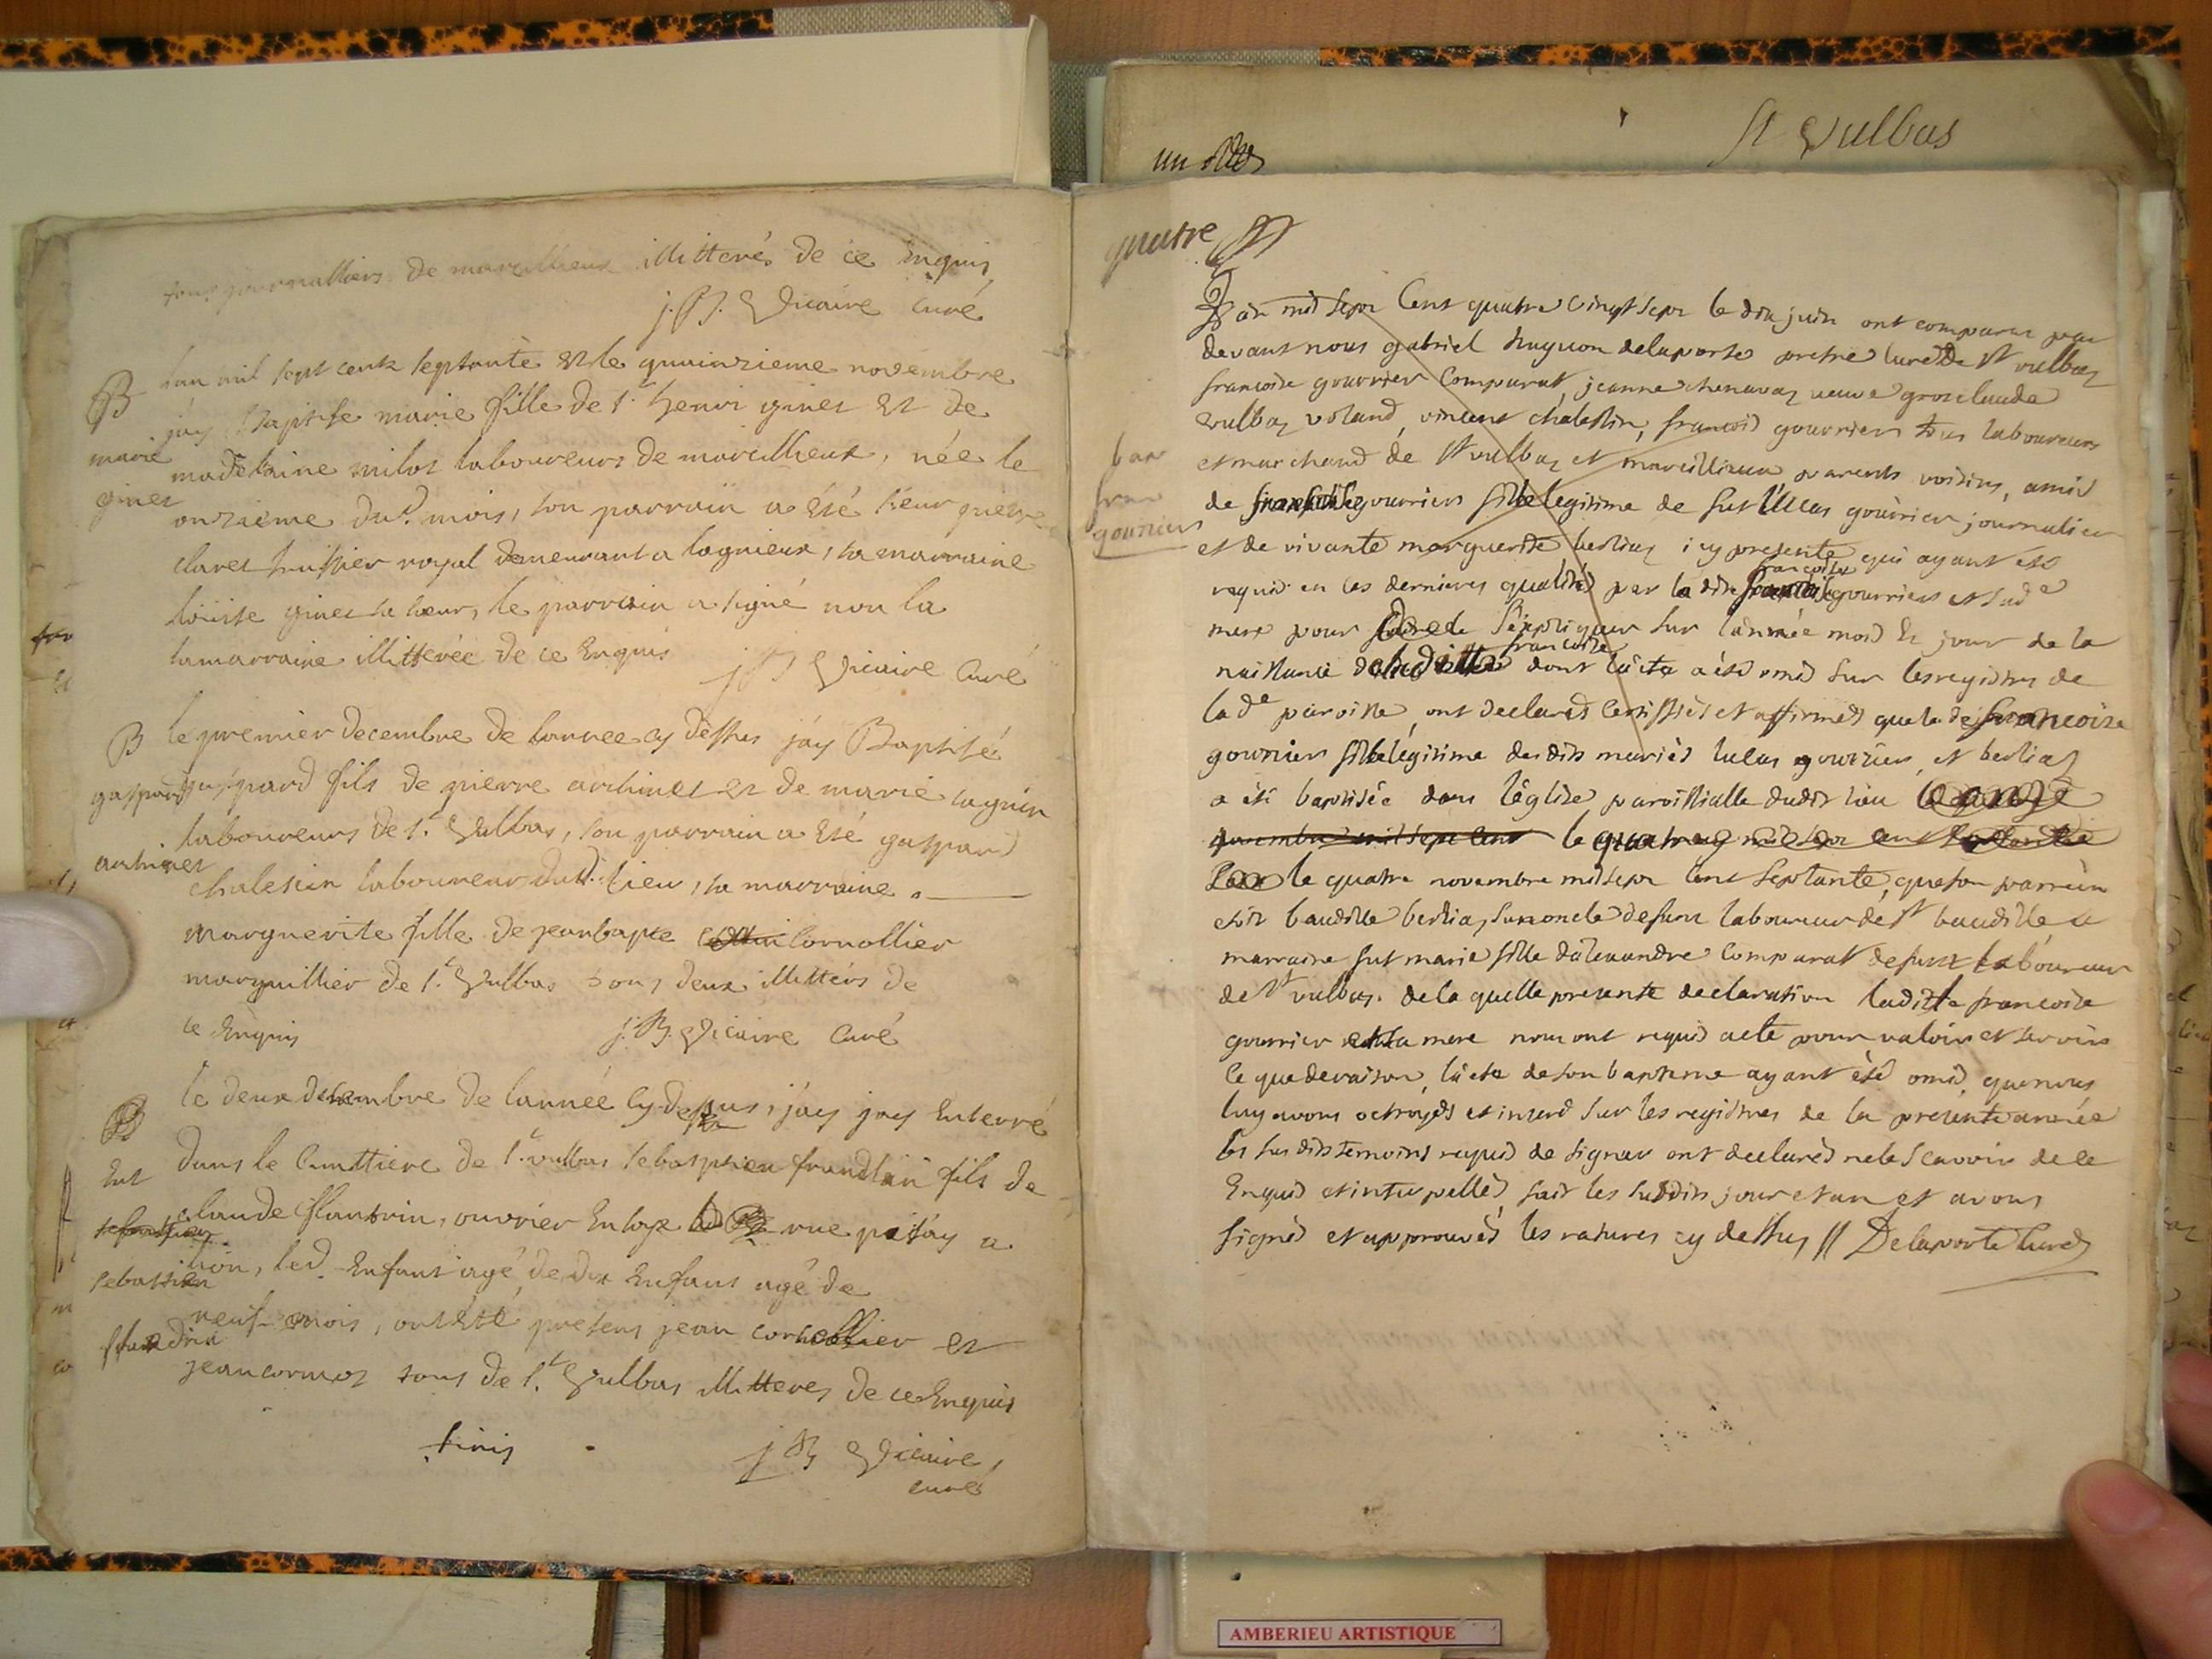 tous journalliers de marcillieux illitterés de ce enquis
j. B. Vicaire curé
B
marie
ginet
lan mil sept cents septante et le quinzieme novembre
jay baptise marie fille de sr henri ginet et de
madelaine milot laboureurs de marcillieux, née le
onzieme dud. mois, son parrain a été sieur pierre
claret huissier royal demeurant a lagnieux, sa marraine
louise ginet sa sœur, le parrain a signé non la
la marraine illitterée de ce enquis
j B Vicaire curé
B
gaspard
archinet
le premier decembre de lannee cy dessus jáy Baptisé
gaspard fils de pierre archinet et de marie
laboureurs de st Vulbas, son parrain a eté gaspard
chalestin laboureur dud. lieu, sa marraine
marguerite fille de jean bapte cornollier
marguillier de st Vulbas tous deux illitterés de
ce enquis
j. B. Vicaire curé
Ent
sebastien
flandrin
le deux decembre de lannée cy dessus, jáy jay enterré
dans le cimettiere de st vulbas sebastien frandlin fils de
claude flandrin, ouvrier en rue a
lion, led. enfant agé de dix enfant agé de
neuf mois, ont été presens jean cornollier et
jean cormoz tous de st Vulbas illitteres de ce enquis
finis
j B Vicaire,
curé
St Vulbas
quatre
bap
fran
gourrier
Lan mil sept cent quatre vingt sept le dix juin ont comparus par
devant nous gabriel huguon delaporte pretre curé de st vulbas
francoise gourrier comparat, jeanne chenavaz veuve groclaude
vulbaz voland, vincent chalestin, francois gourrier tous laboureurs
et marchand de st vulbaz et marcillieux parents voisins, amis
de gourrier fille legitime de fut lucas gourrier journalier
et de vivante marguerite berliaz icy presente qui ayant eté
requis en ces dernieres qualités par la dite francoise gourrier et sade
mere pour s'expliquer sur lánnée mois et jour de la
naissance de francoise dont lácte a été omis sur les registres de
la de paroisse, ont declarés certiffiés et affirmés que la de francoise
gourrier fille légitime des dits mariés lucas gourrier, et berliaz
a été baptisée dans léglise paroissialle dudit lieu
novembre mil sept cent le
le quatre novembre mil sept cent septante, que son parrein
etoit baudille berliaz, son oncle defunt laboureur de st baudille sa
marraine fut marie fille dálexandre comparat defunt laboureur
de st vulbas. de la quelle presente declaration laditte francoise
gourrier et sa mere nous ont requis acte pour valoir et servir
ce que de raison, lácte de son bapteme ayant été omis, que nous
luy avons octroyés et inseré sur les registres de la presente année
les sus dits temoins requis de signer ont declarés ne le scavoir de ce
Enquis et interpellés, fait les susdits jour et an et avons
signés et approuvés les ratures cy dessus // Delaporte curé
AMBERIEU ARTISTIQUE